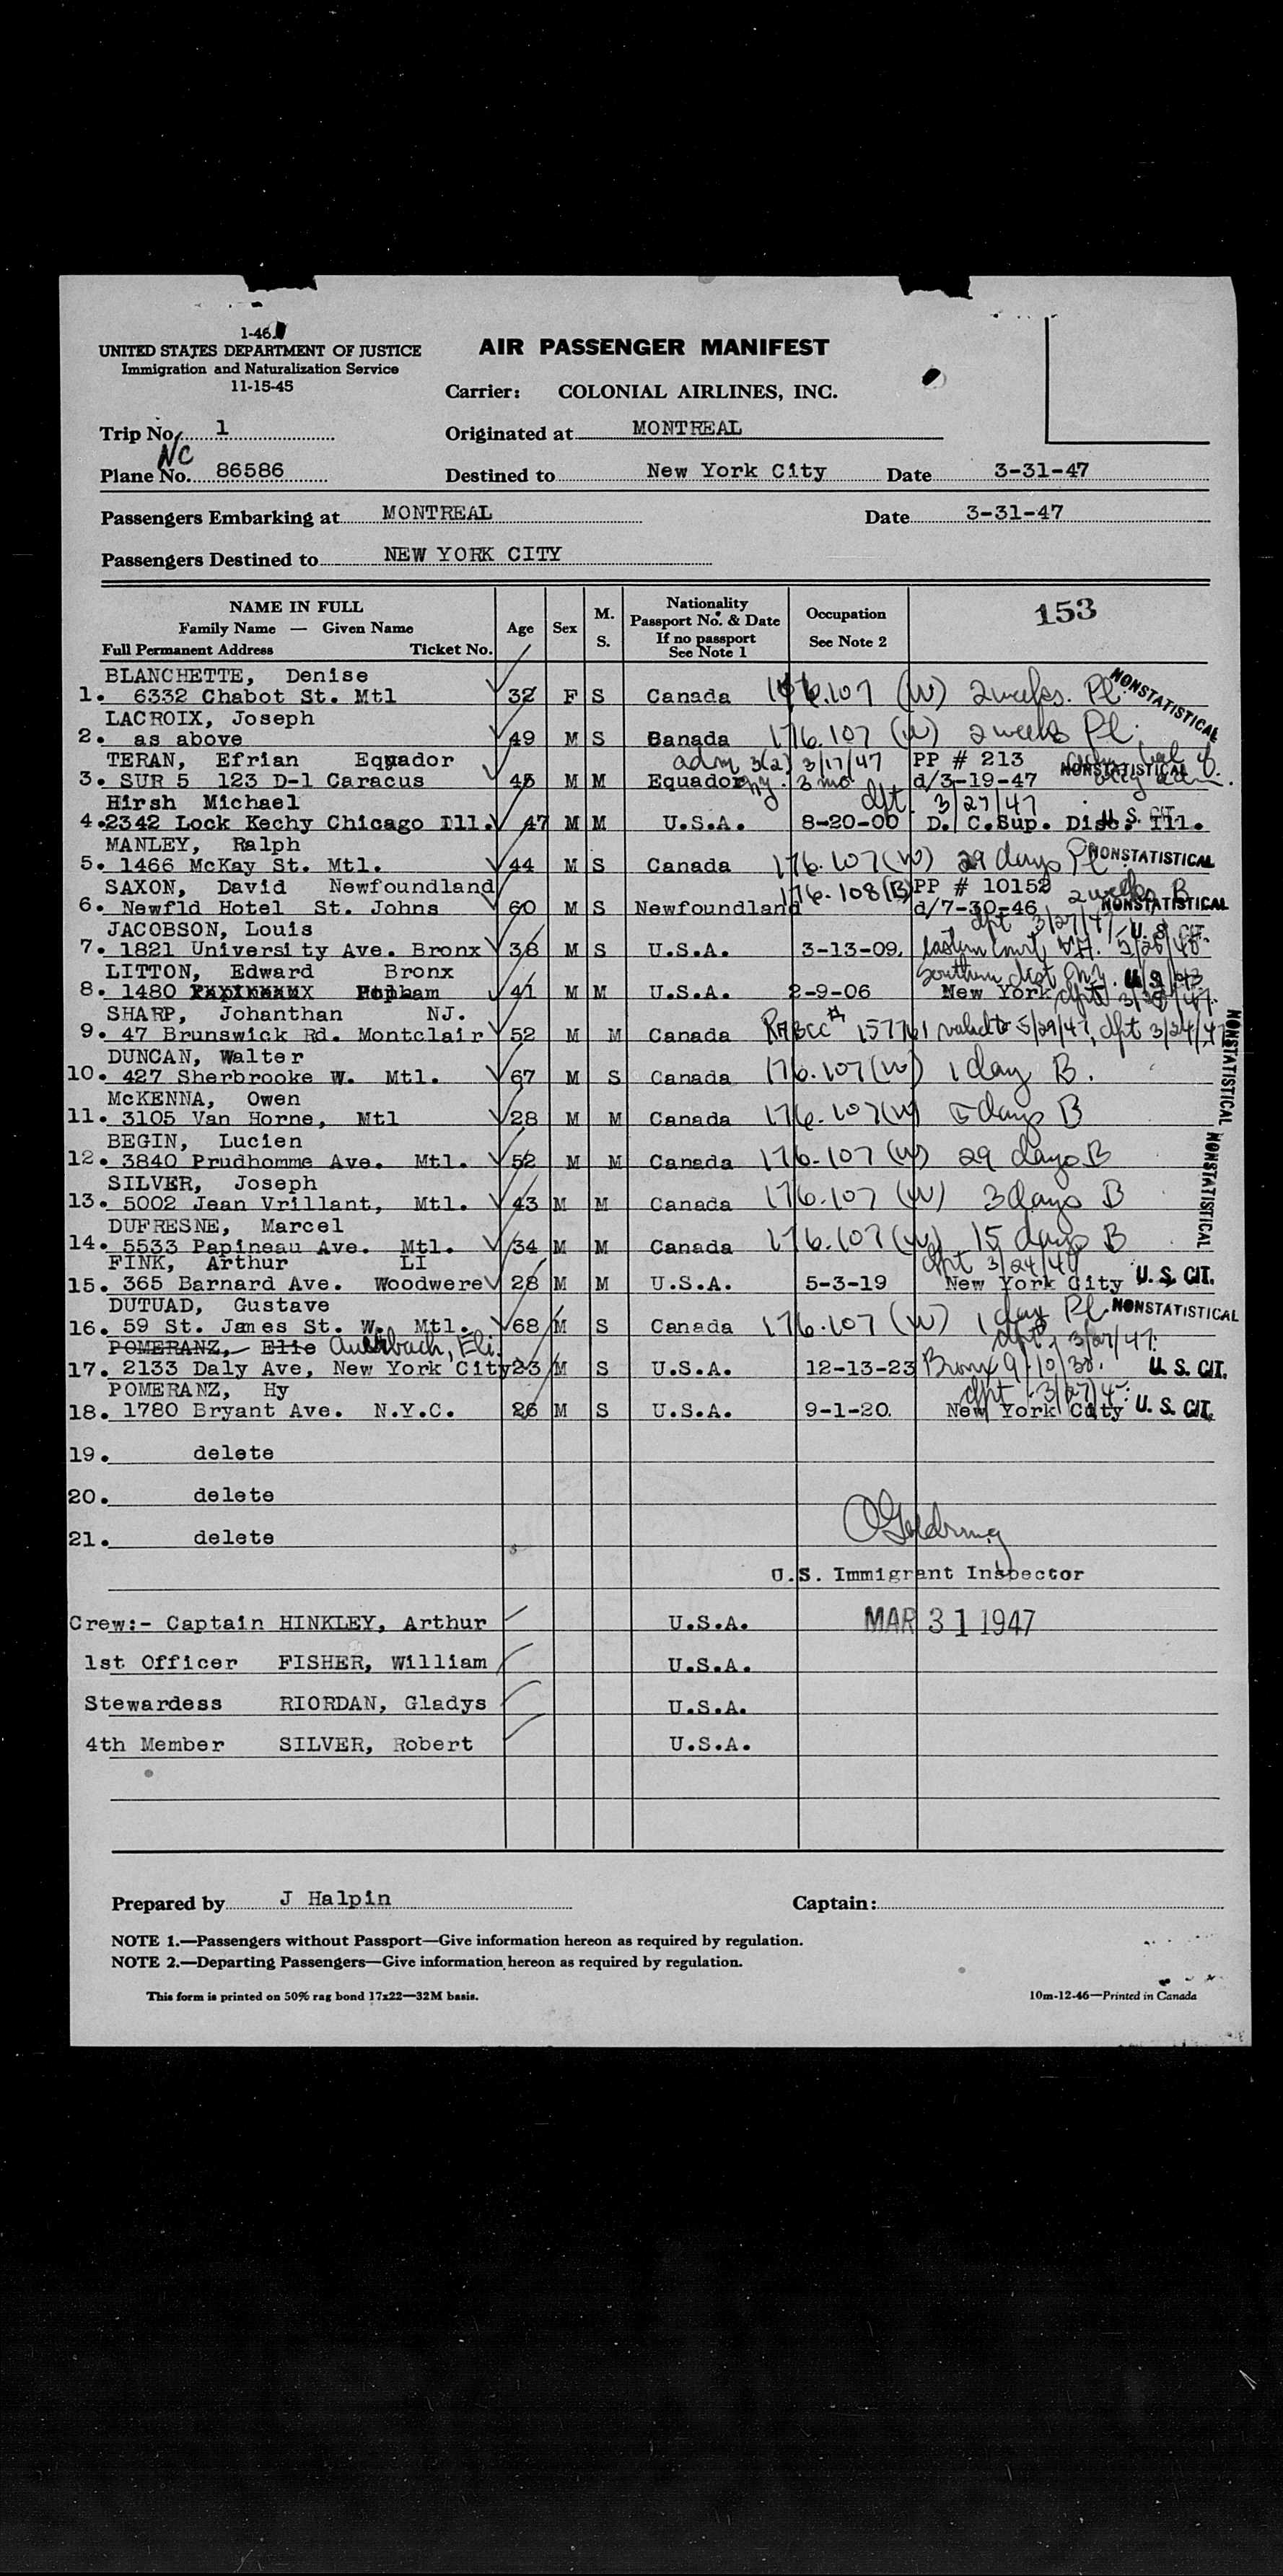 1-46
UNITED STATES DEPARTMENT OF JUSTICE
Immigration and Naturalization Service
11-15-45
AIR PASSENGER MANIFEST
Carrier: COLONIAL AIRLINES, INC.
Trip No. 1 Originated at MONTREAL
NC
Plane No. 86586 Destined to New York City Date 3-31-47
Passengers Embarking at MONTREAL Date 3-31-47
Passengers Destined to NEW YORK CITY
NAME IN FULL
Family Name — Given Name
Full Permanent Address Ticket No.
Age Sex M. S.
Nationality
Passport No. & Date
If no passport
See Note 1
Occupation
See Note 2
153
BLANCHETTE, Denise
1. 6332 Chabot St. Mtl 32 F S Canada 176.107 (W) 2 weeks. Pl. NONSTATISTICAL
LACROIX, Joseph
2. as above 49 M S Banada 176.107 (W) 2 weeks Pl.
TERAN, Efrian Equador adm 3(2) 3/17/47 PP # 213
3. SUR 5 123 D-1 Caracus 45 M M Equador ny. 3 mo d/3-19-47 NONSTATISTICAL
Hirsh Michael dpt 3/27/47
4. 2342 Lock Kechy Chicago Ill. 47 M M U.S.A. 8-20-00 D. C. Sup. Disc. Ill. U. S. CIT.
MANLEY, Ralph
5. 1466 McKay St. Mtl. 44 M S Canada 176.107 (W) 29 days Pl NONSTATISTICAL
SAXON, David Newfoundland 176.108 (B) PP # 10152 2 weeks B
6. Newfld Hotel St. Johns 60 M S Newfoundland d/7-30-46 NONSTATISTICAL
JACOBSON, Louis dpt 3/27/47 U. S. CIT.
7. 1821 University Ave. Bronx 38 M S U.S.A. 3-13-09. Eastern Court
LITTON, Edward Bronx Southern dist N.Y.
8. 1480 Popham 41 M M U.S.A. 2-9-06 New York dpt
SHARP, Johanthan NJ.
9. 47 Brunswick Rd. Montclair 52 M M Canada RABCC # 157761 valid to 5/29/47, dpt 3/24/47
NONSTATISTICAL
DUNCAN, Walter
10. 427 Sherbrooke W. Mtl. 67 M S Canada 176.107 (W) 1 day B.
McKENNA, Owen
11. 3105 Van Horne, Mtl 28 M M Canada 176.107 (W) 5 days B
BEGIN, Lucien
12. 3840 Prudhomme Ave. Mtl. 52 M M Canada 176.107 (W) 29 days B
NONSTATISTICAL
SILVER, Joseph
13. 5002 Jean Vrillant, Mtl. 43 M M Canada 176.107 (W) 3 days B
DUFRESNE, Marcel
14. 5533 Papineau Ave. Mtl. 34 M M Canada 176.107 (W) 15 days B
FINK, Arthur LI dpt 3/24/47
15. 365 Barnard Ave. Woodwere 28 M M U.S.A. 5-3-19 New York City U. S. CIT.
DUTUAD, Gustave
16. 59 St. James St. W. Mtl. 68 M S Canada 176.107 (W) 1 day Pl. NONSTATISTICAL
POMERANZ, Elie Auerbach, Eli. dpt. 3/27/47.
17. 2133 Daly Ave, New York City 23 M S U.S.A. 12-13-23 Bronx U. S. CIT.
POMERANZ, Hy dpt 3/27/47
18. 1780 Bryant Ave. N.Y.C. 26 M S U.S.A. 9-1-20. New York City U. S. CIT.
19. delete
20. delete
21. delete
OGoldring
U.S. Immigrant Inspector
Crew:- Captain HINKLEY, Arthur U.S.A. MAR 31 1947
1st Officer FISHER, William U.S.A.
Stewardess RIORDAN, Gladys U.S.A.
4th Member SILVER, Robert U.S.A.
Prepared by J Halpin Captain:
NOTE 1.—Passengers without Passport—Give information hereon as required by regulation.
NOTE 2.—Departing Passengers—Give information hereon as required by regulation.
This form is printed on 50% rag bond 17x22—32M basis. 10m-12-46—Printed in Canada